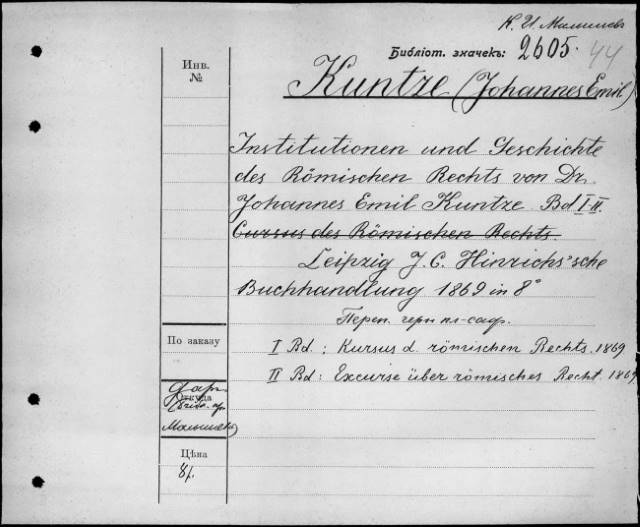 К. И. Малышев
Библіот. значекъ: 2605. 44
Инв.
№
Kuntze (Johannes Emil)
Institutionen und Geschichte
des Römischen Rechts von Dr.
Johannes Emil Kuntze. Bd I-II.
Cursus des Römischen Rechts.
Leipzig J. C. Hinrichs'sche
Buchhandlung 1869 in 8°
Переп. черн кл-сафр.
По заказу
I Bd.: Kursus d. römischen Rechts. 1869
II Bd: Excurse über römisches Recht. 1869
Дар.
Откуда
Малышев
Цѣна
8р.